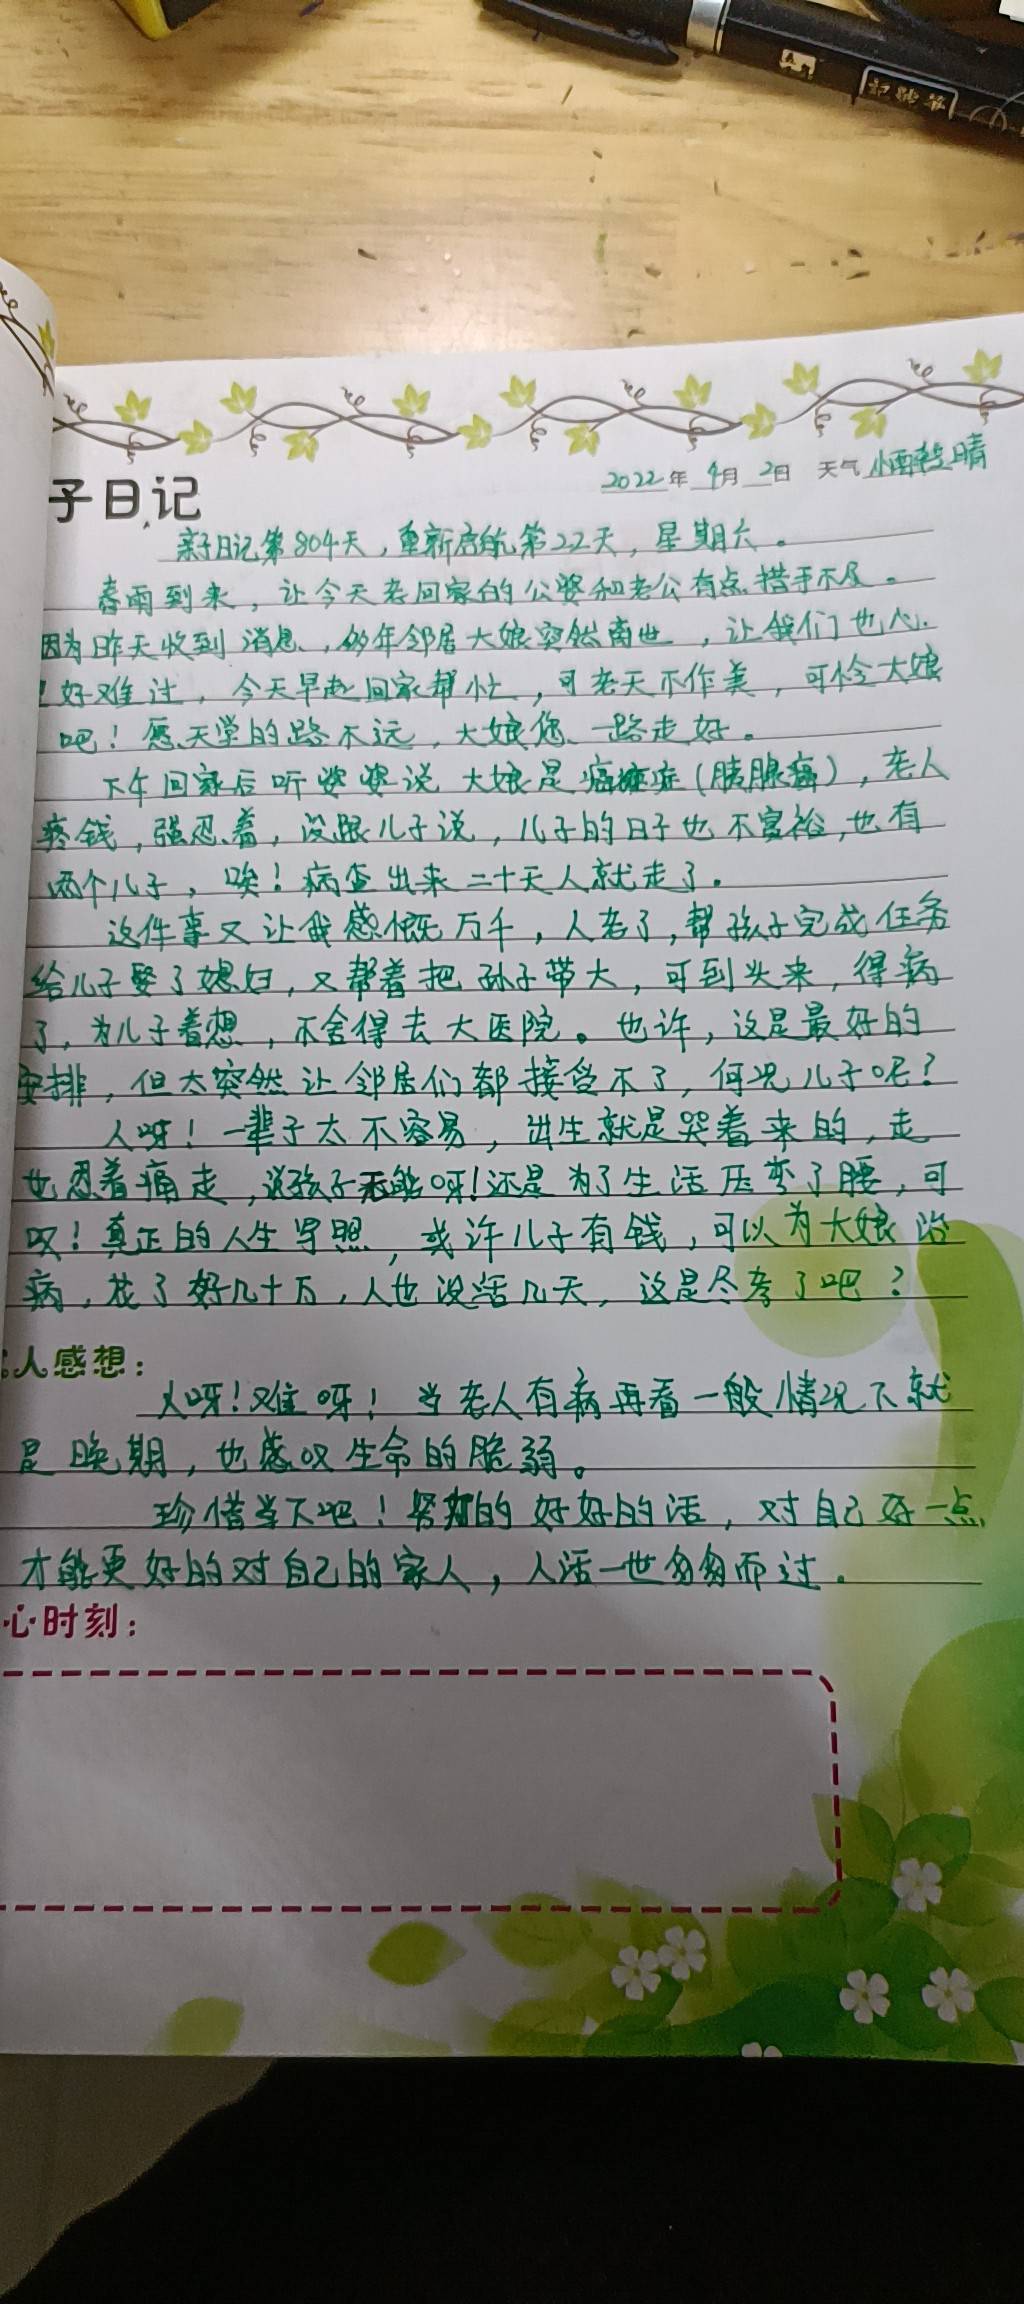 子日记
2022年 4月 2日 天气 小雨转晴
亲子日记第804天，重新启航第22天，星期六。
春雨到来，让今天老回家的公婆和老公有点措手不及。
因为昨天收到消息，多年邻居大娘突然离世，让我们也心
里好难过，今天早起回家帮忙，可老天不作美，可怜大娘
吧！愿天堂的路不远，大娘您一路走好。
下午回家后听婆婆说大娘是癌症（胰腺癌），老人
疼钱，强忍着，没跟儿子说，儿子的日子也不富裕，也有
两个儿子，唉！病查出来二十天人就走了。
这件事又让我感慨万千，人老了，帮孩子完成任务
给儿子娶了媳妇，又帮着把孙子带大，可到头来，得病
了，为儿子着想，不舍得去大医院。也许，这是最好的
安排，但太突然让邻居们都接受不了，何况儿子呢？
人呀！一辈子太不容易，出生就是哭着来的，走
也忍着痛走，说孩子无能呀！还是为了生活压弯了腰，可
叹！真正的人生写照，或许儿子有钱，可以为大娘治
病，花了好几十万，人也没活几天，这是尽孝了吧？
人感想：
人呀！难呀！当老人有病再看一般情况下就
是晚期，也感叹生命的脆弱。
珍惜当下吧！努力的好好的活，对自己好一点
才能更好的对自己的家人，人活一世匆匆而过。
心时刻：